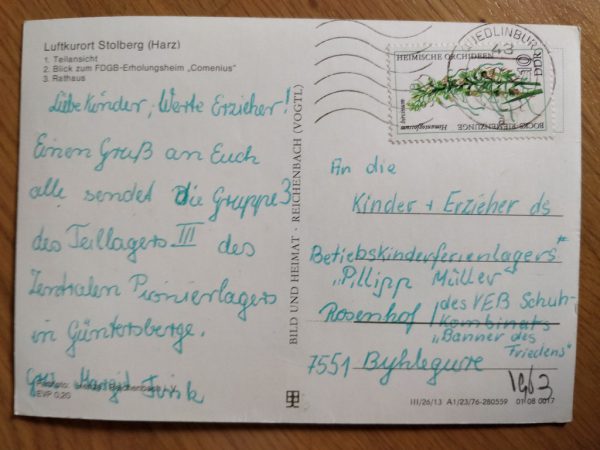 Luftkurort Stolberg (Harz)
1. Teilansicht
2. Blick zum FDGB-Erholungsheim „Comenius“
3. Rathaus
Liebe Kinder, Werte Erzieher!
Einen Gruß an Euch
alle sendet die Gruppe 3
des Teillagers III des
Zentralen Pionierlagers
in Güntersberge.
EVP 0,20
BILD UND HEIMAT · REICHENBACH (VOGTL)
QUEDLINBURG
43
DDR
10
HEIMISCHE ORCHIDEEN
BOCKS-RIEMENZUNGE
Himantoglossum
hircinum
An die
Kinder + Erzieher ds
Betriebskinderferienlagers
„Pillipp Müller“
des VEB Schuh-
Kombinats
„Banner des
Friedens“
Rosenhof
7551 Byhlegurre
III/26/13 A1/23/76-280559 01 08 0017